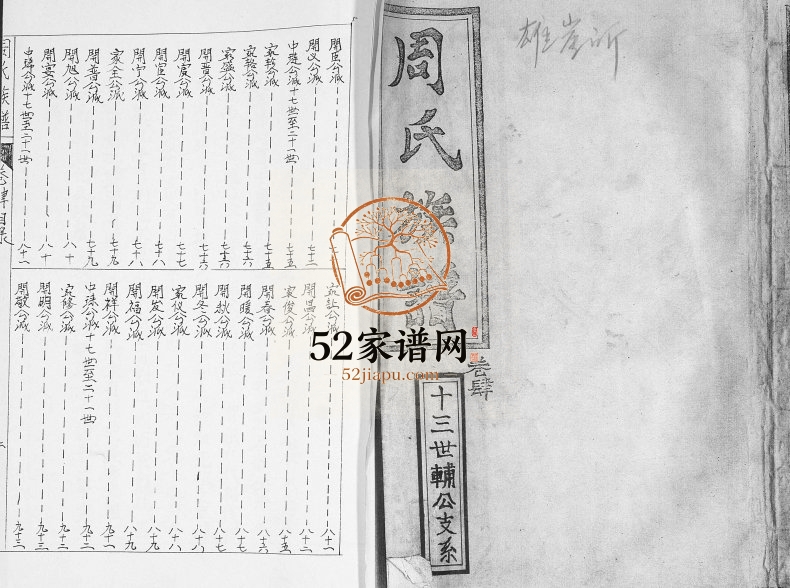 雄崖所
周氏族譜
卷肆
十三世輔公支系
52家谱网
52jiapu.com
開臣公派 八十一
開义公派 七十二
中璉公派十七世至二十一世 七十五
家較公派 七十五
家輅公派 七十六
家盛公派 七十六
開晋公派 七十六
開虞公派 七十七
開宜公派 七十八
開宁公派 七十八
家全公派 七十九
開普公派 七十九
開旭公派 八十
開宴公派 八十
公派十七世至二十一世 八十一
氏族譜
卷肆目錄
家壯公派 八十一
公派 八十二
家俊公派 八十五
開春公派 八十六
開暖公派 八十七
開秋公派 八十七
開冬公派 八十八
家仪公派 八十八
開友公派 八十九
開福公派 八十九
開祥公派 九十
中珠公派十七世至二十一世 九十二
家修公派 九十二
開明公派 九十三
開敏公派 九十三